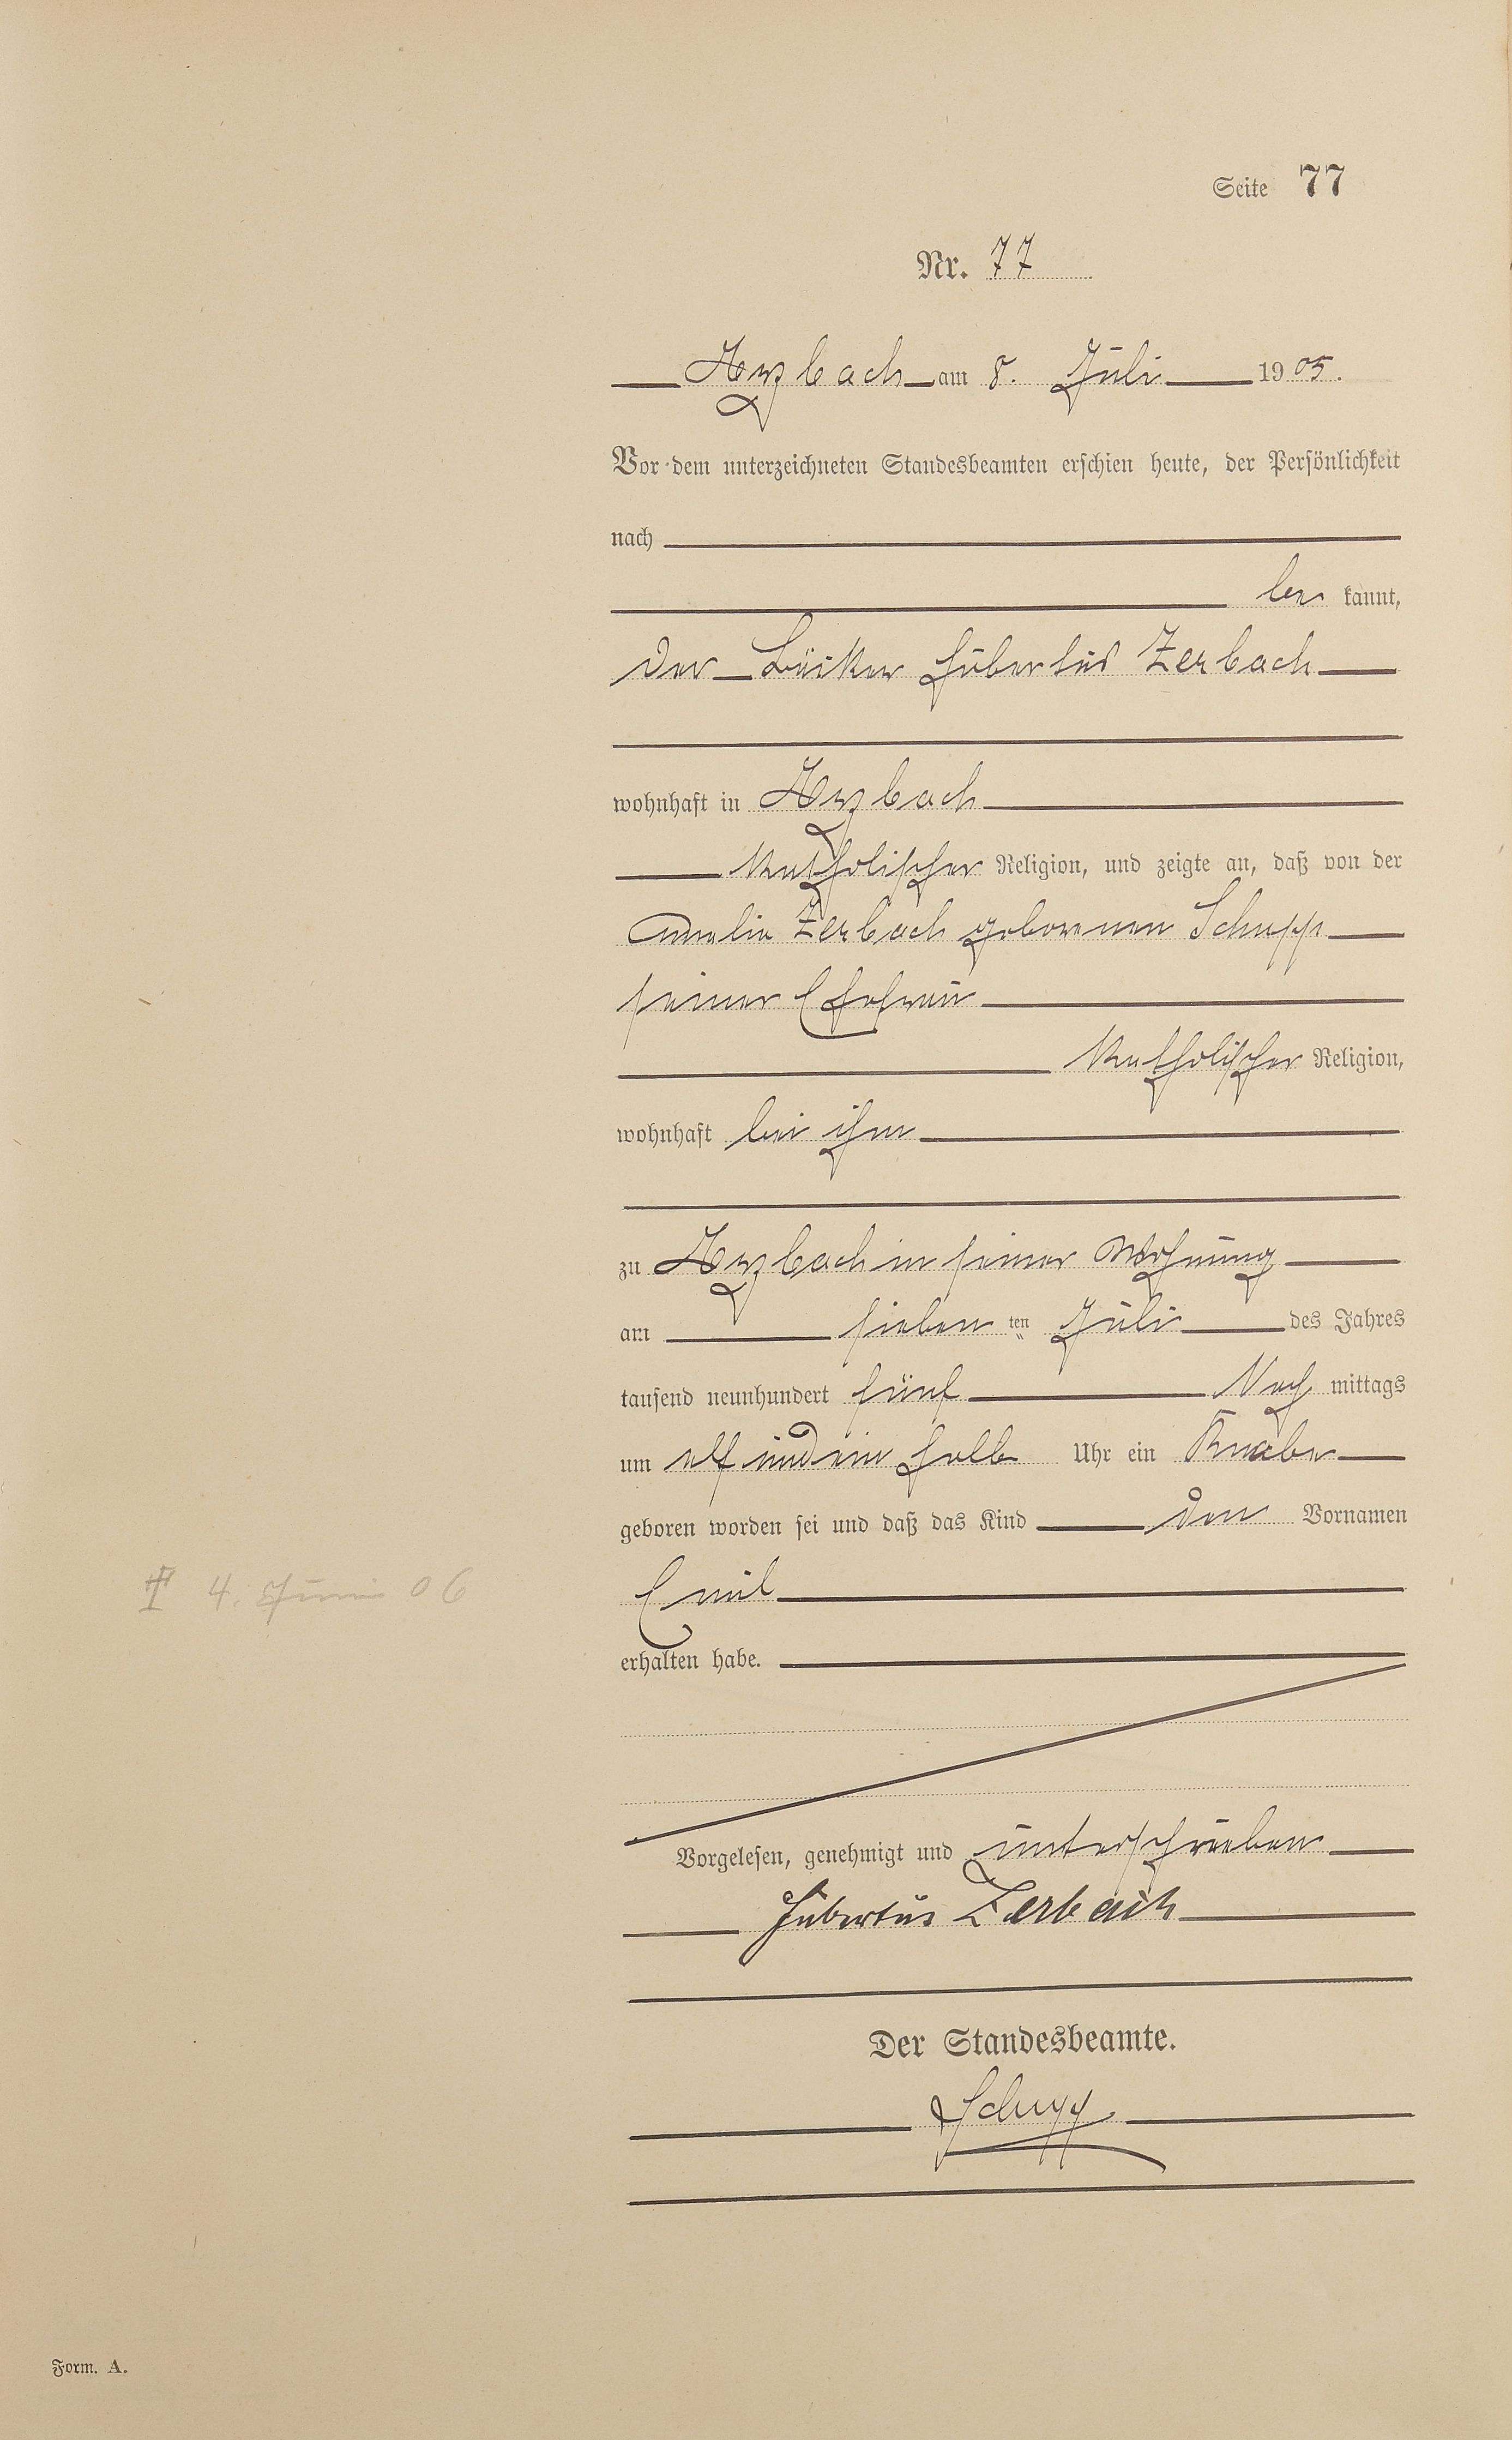 Seite 77
Nr. 77
Arzbach am 8. Juli 1905.
Vor dem unterzeichneten Standesbeamten erschien heute, der Persönlichkeit
nach
be kannt,
der Bäcker Hubertus Zerbach
wohnhaft in Arzbach
katholischer Religion, und zeigte an, daß von der
Amalie Zerbach geborenen Schupp
seiner Ehefrau
katholischer Religion,
wohnhaft bei ihm
zu Arzbach in seiner Wohnung
am sieben ten Juli des Jahres
tausend neunhundert fünf Nach mittags
um elf und ein halb Uhr ein Knabe
geboren worden sei und daß das Kind den Vornamen
Emil
† 4. Juni 06
erhalten habe.
Vorgelesen, genehmigt und unterschrieben
Hubertus Zerbach
Der Standesbeamte.
Schupp
Form. A.